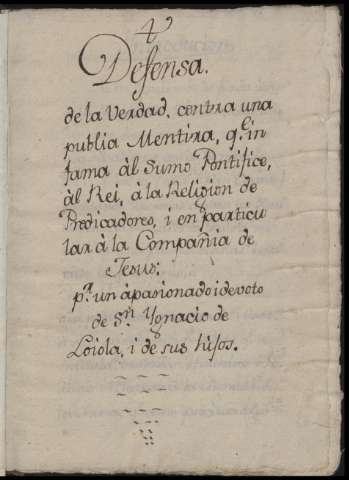 4
Defensa.
de la Verdad, contra una
publia Mentira, q.e in
fama àl Sumo Pontifice,
àl Rei, à la Religion de
Predicadores, i en particu
lar à la Compañia de
Jesus:
p.r un àpasionado i devoto
de S.n Ygnacio de
Loiola, i de sus hijos.